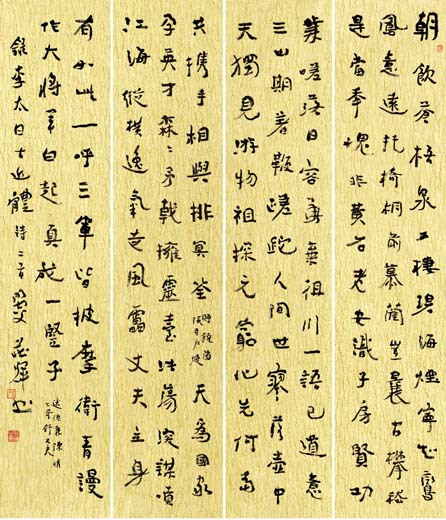 朝飲蒼梧泉夕棲碧海煙寧知鸞
鳳意遠托椅桐前慕藺豈曩古攀嵇
是當年愧非黃石老安識子房賢功
業嗟落日容華棄徂川一語已道意
三山期著鞭蹉跎人間世寥落壺中
天獨見游物祖探元窮化先何當
共攜手相與排冥筌 贈饒陽張司戶燧 天為國家
孕英才森〻矛戟擁靈臺浩蕩深謀噴
江海縱橫逸氣走風雷丈夫立身
有如此一呼三軍皆披靡衛青謾
作大將軍白起真成一豎子 述德兼陳情上哥舒大夫
錄李太白古近體詩二首 書